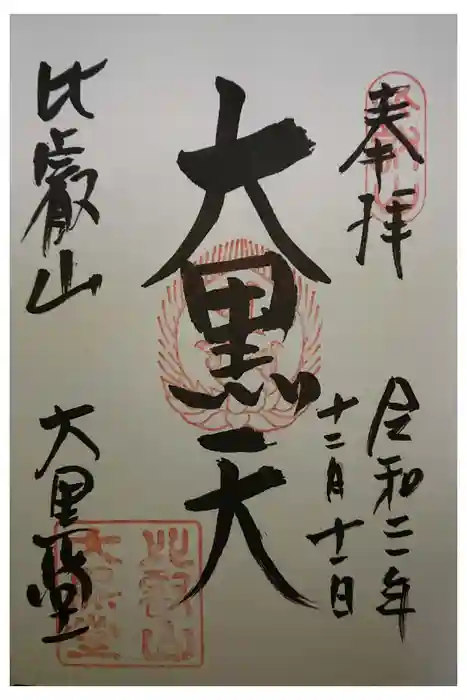 奉拝
令和二年
十二月十一日
大黒天
比叡山
大黒堂
比叡山
大黒堂